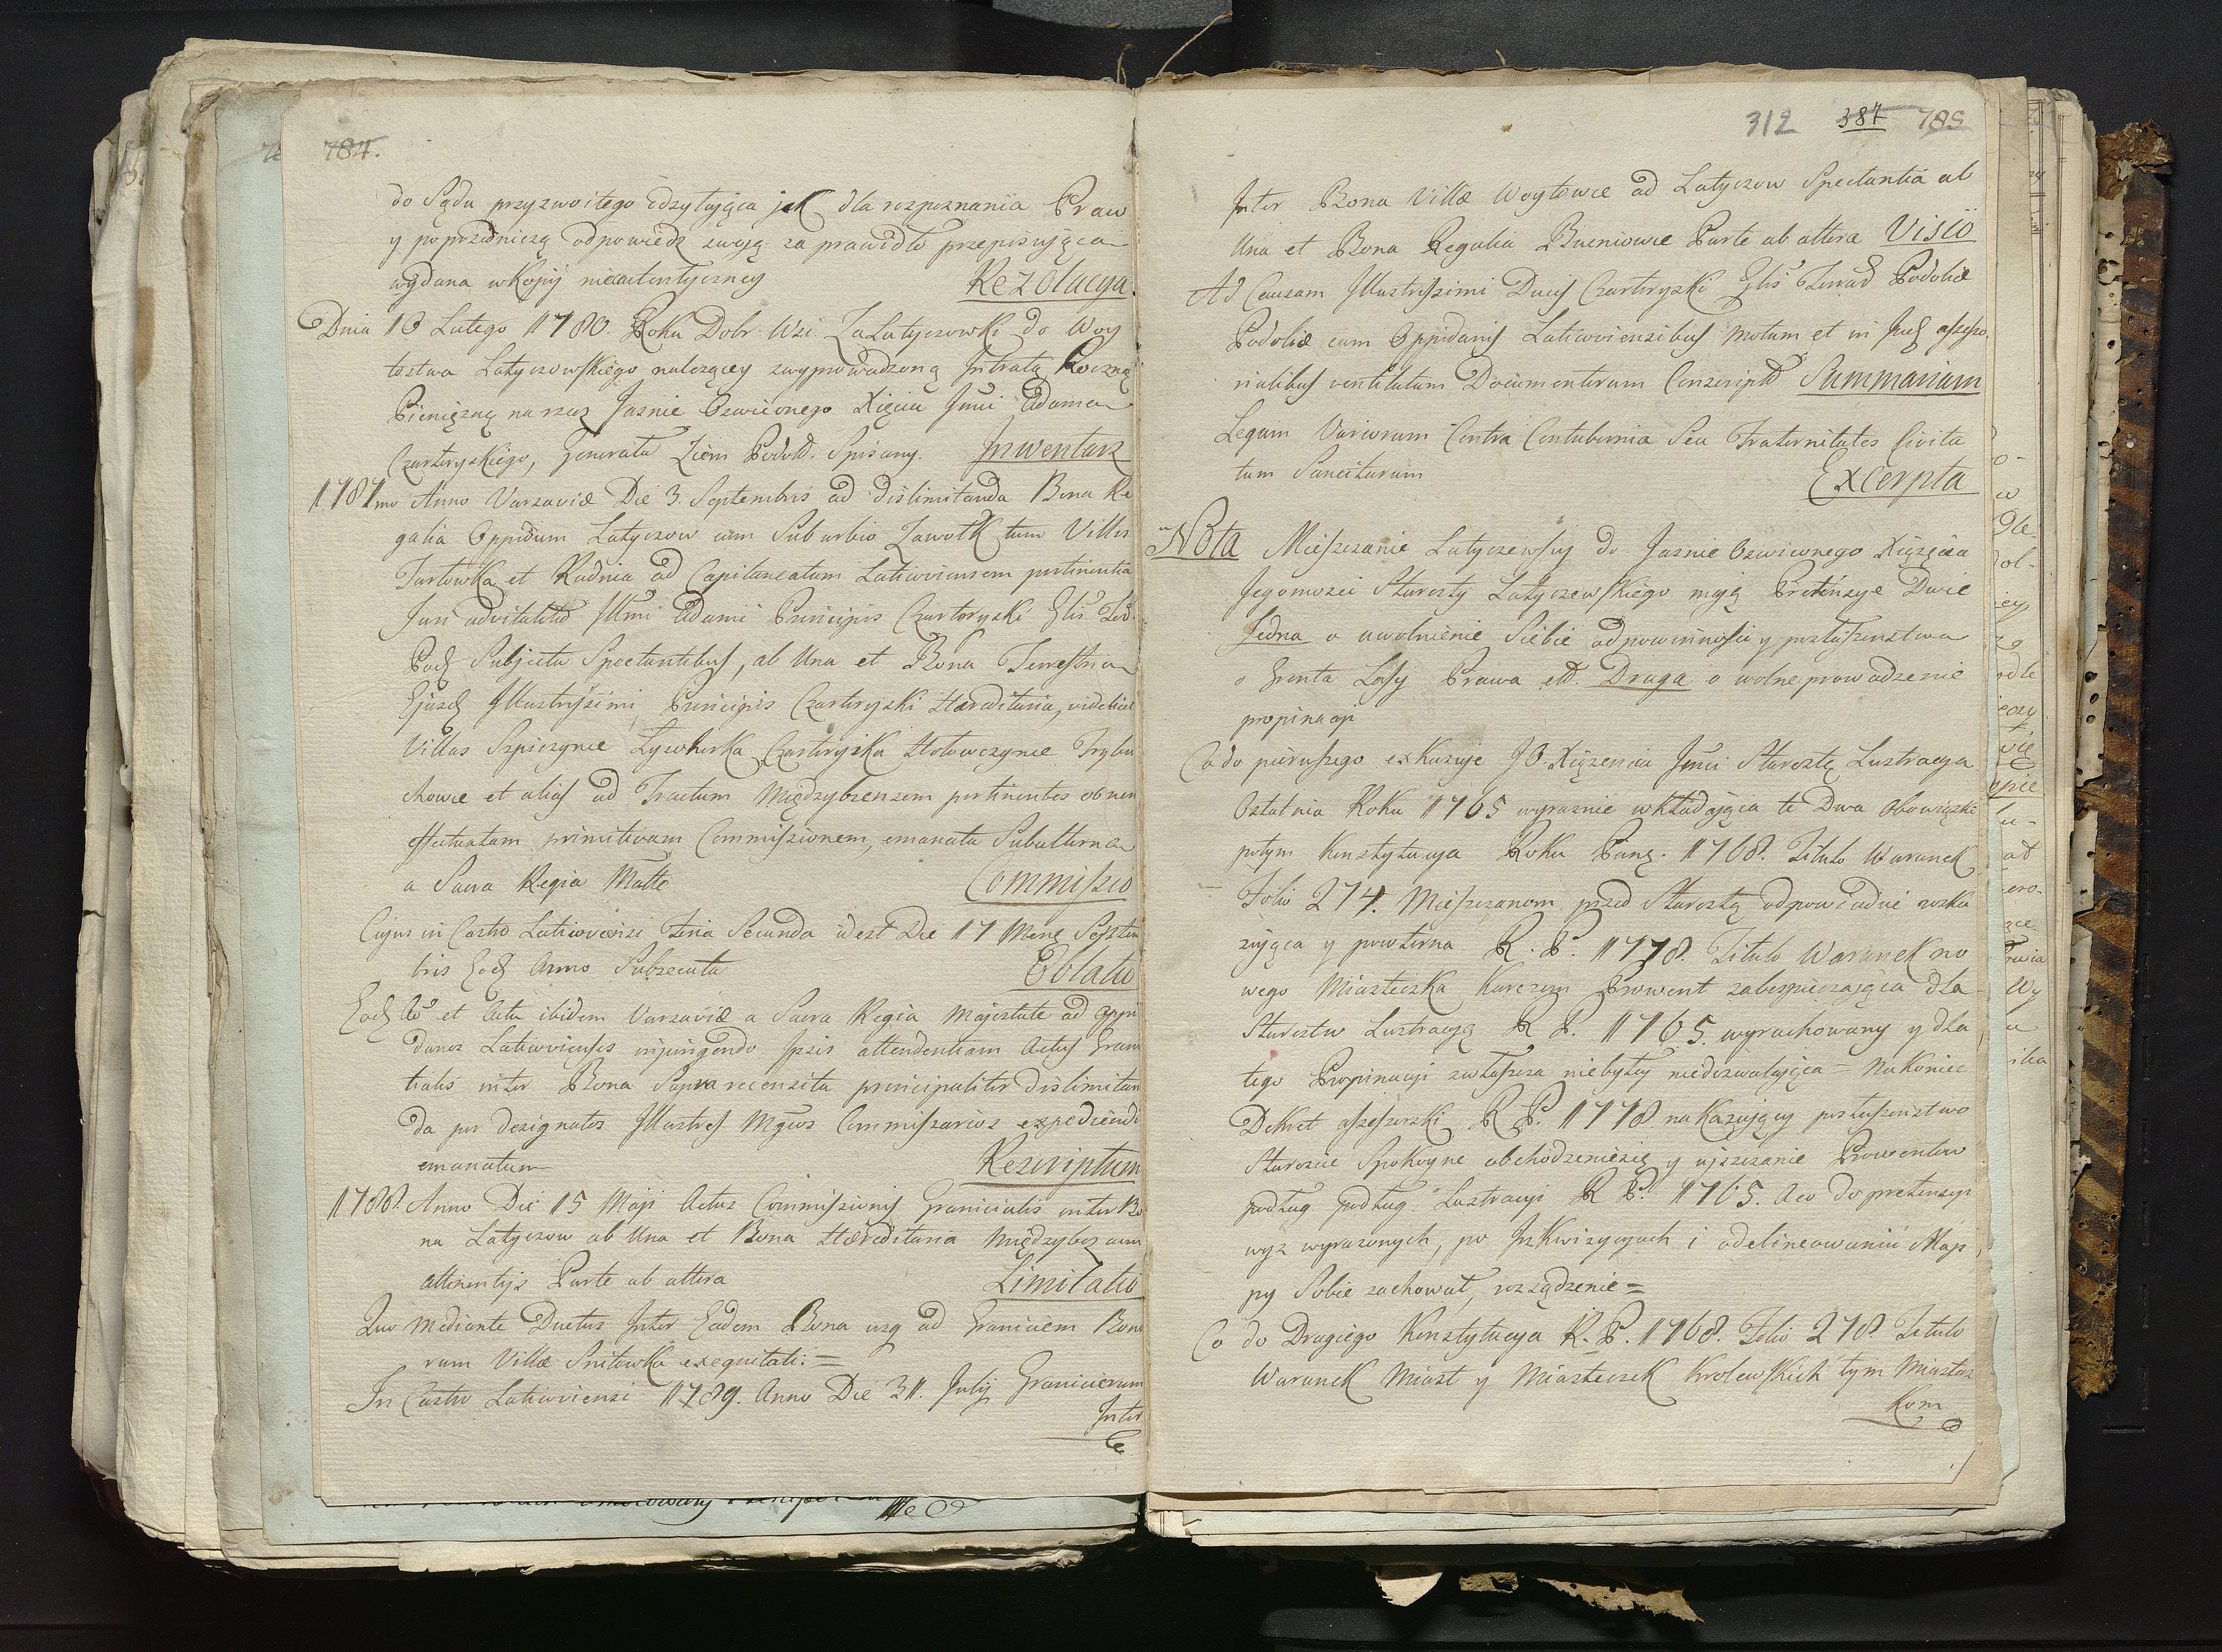 784.
do Sądu przyzwoitego odzytyjąca jak dla rozpoznania Praw
y poprzedniczą odpowiedz swoją za prawidło przepisująca
wydana w Kopij nieautentyczney Rezolucya.
Dnia 16 Lutego 1780. Roku Dobr Wsi ZaLatyczowki do Woy
tostwa Latyczowskiego należącey zwyprowadzoną Intratą Roczną
Pieniężną na rzecz Jasnie Oswieconego Xięcia Jmci Adama
Czartoryskiego, Generała Ziem Podol. Spisany. Inwentarz
1787mo Anno Varsaviæ Die 3. Septembris ad dislimitanda Bona Re
galia Oppidum Latyczow cum Suburbio Zawołk tum Villas
Jartowka et Rudnia ad Capitaneatum Laticoviensem pertinentia
Juri advitalitio Illmi Adami Principis Czartoryski Glis Ter.
Pod Subjecta Spectantibus, ab Una et Bona Terrestria
Ejusd Illustrissimi Principis Czartoryski Hæreditaria, videlicet
Villas Szpiczynce Lysohirka Czartoryjka Hołowczynce Trybu
chowce et alias ad Tractum Międzybzensem pertinentes ob non
effectuatam primitivam Commissionem, emanata Subalterna
a Sacra Regia Matte Commissio
Cujus in Castro Laticoviensi Feria Secunda idest Die 17 Mens Septem
bris Eod Anno Subsecuta Oblatio
Eod Ao et Actu ibidem Varsaviæ a Sacra Regia Majestate ad Oppi
danos Laticovienses injungendo Ipsis attendentiam Actus Grani
tialis inter Bona Supra recensita principaliter dislimitan
da per designatos Illustres Mgcos Commissarios expediendi
emanatum Rescriptum
1788. Anno Die 15 Maji Actus Commissionis Granicialis inter Bo
na Latyczow ab Una et Bona Hæreditaria Międzyboz cum
attinentijs Parte ab altera Limitatio
Quo Mediante Ductus Inter Eadem Bona usq ad Graniciem Bono
rum Villæ Snitowka exequitati. =
In Castro Laticoviensi 1789. Anno Die 31. Julij Granicierum
Inter
312 387 785
Inter Bona Villæ Woytowce ad Latyczow Spectantia ab
Una et Bona Regalia Bucniowce Parte ab altera Visio
Ad Causam Illustrissimi Ducis Czartoryski Glis Terrar Podoliæ
Podoliæ cum Oppidanis Laticoviensibus motum et in Jud assesso
rialibus ventilatum Documentorum Conscript Summarium
Legum Variorum Contra Contubernia Seu Fraternitates Civita
tum Sancitarum Excerpta
Nota Mieszczanie Latyczewscy do Jasnie Oswieconego Xiążęcia
Jegomosci Starosty Latyczewskiego mają Pretensye Dwie
Jedna o uwolnienie Siebie od powinnosci y posłuszenstwa
o Grunta Lasy Prawa etc. Druga o wolne prowadzenie
propinacji
Co do pierwszego exkuzuje J.O. Xiążęcia Jmci Starostę Lustracya
Ostatnia Roku 1765 wyraznie wkładająca te Dwa Obowiązki
potym Konstytucya Roku Pang. 1768. Titulo Warunek
Folio 274. Mieszczanom przed Starostą odpowiadać roska
zująca y powtorna R. P. 1778. Titulo Warunek no
wego Miasteczka Karczem Prowent zabezpieczająca dla
Starostw Lustracyą R P. 1765. wyrachowany y dla
tego Propinacyi zwłaszcza niebyłey niedozwalająca = Nakoniec
Dekret assessorski R P. 1778 nakazujący posłuszenstwo
Staroscie Spokoyne obchodzeniesię y ujszczanie Prowentow
podług podług Lustracyi R P. 1765. Aco do pretensyi
wyż wyrażonych, po Inkwizycyach i odelineowaniu Map
py Sobie zachował, rozsądzenie =
Co do Drugiego Konstytucya R. P. 1768. Folio 278. Titulo
Warunek Miast y Miasteczek Krolewskich tym Miastecz
Kom